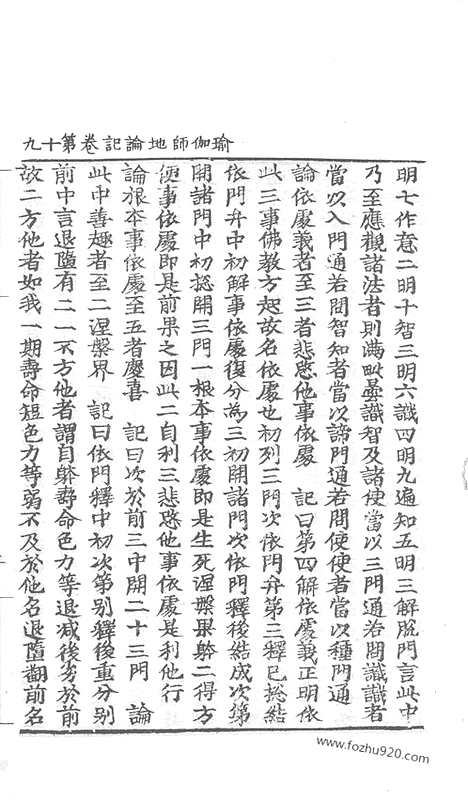 瑜伽師地論記卷第十九
明七作意二明十智三明六識四明九遍知五明三解脫門言此中
乃至應觀諸法者則滿毗曇識智及諸使當以三門通若問識識者
當以入門通若問智知者當以諦門通若問使使者當以種門通
論依處義者至三者悲愍他事依處　記曰第四解依處義正明依
此三事佛教方起故名依處也初列三門次依門弁第三釋已捴結
依門弁中初解事依處復分為三初開諸門次依門釋後結成次第
開諸門中初捴開三門一根本事依處即是生死涅槃果躰二得方
便事依處即是前果之因此二自利三悲愍他事依處是利他行
論根本事依處至五者慶喜　記曰次於前三中開二十三門　論
此中善趣者至二涅槃界　記曰依門釋中初次第別釋後重分別
前中言退墮有二一不方他者謂自躰壽命色力等退減後劣於前
故二方他者如我一期壽命短色力等弱不及於他名退墮翻前名
www.fozhu920.com